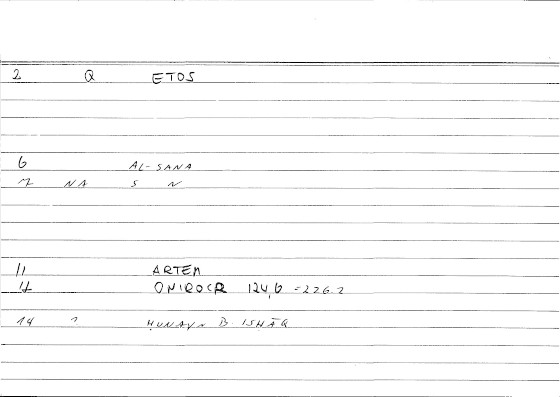 2 Q ETOS
6 AL-SANA
7 NA S N
11 ARTEM
12 ONIROCR 124,6 = 226.2
14 ? ḤUNAYN B. ISḤĀQ